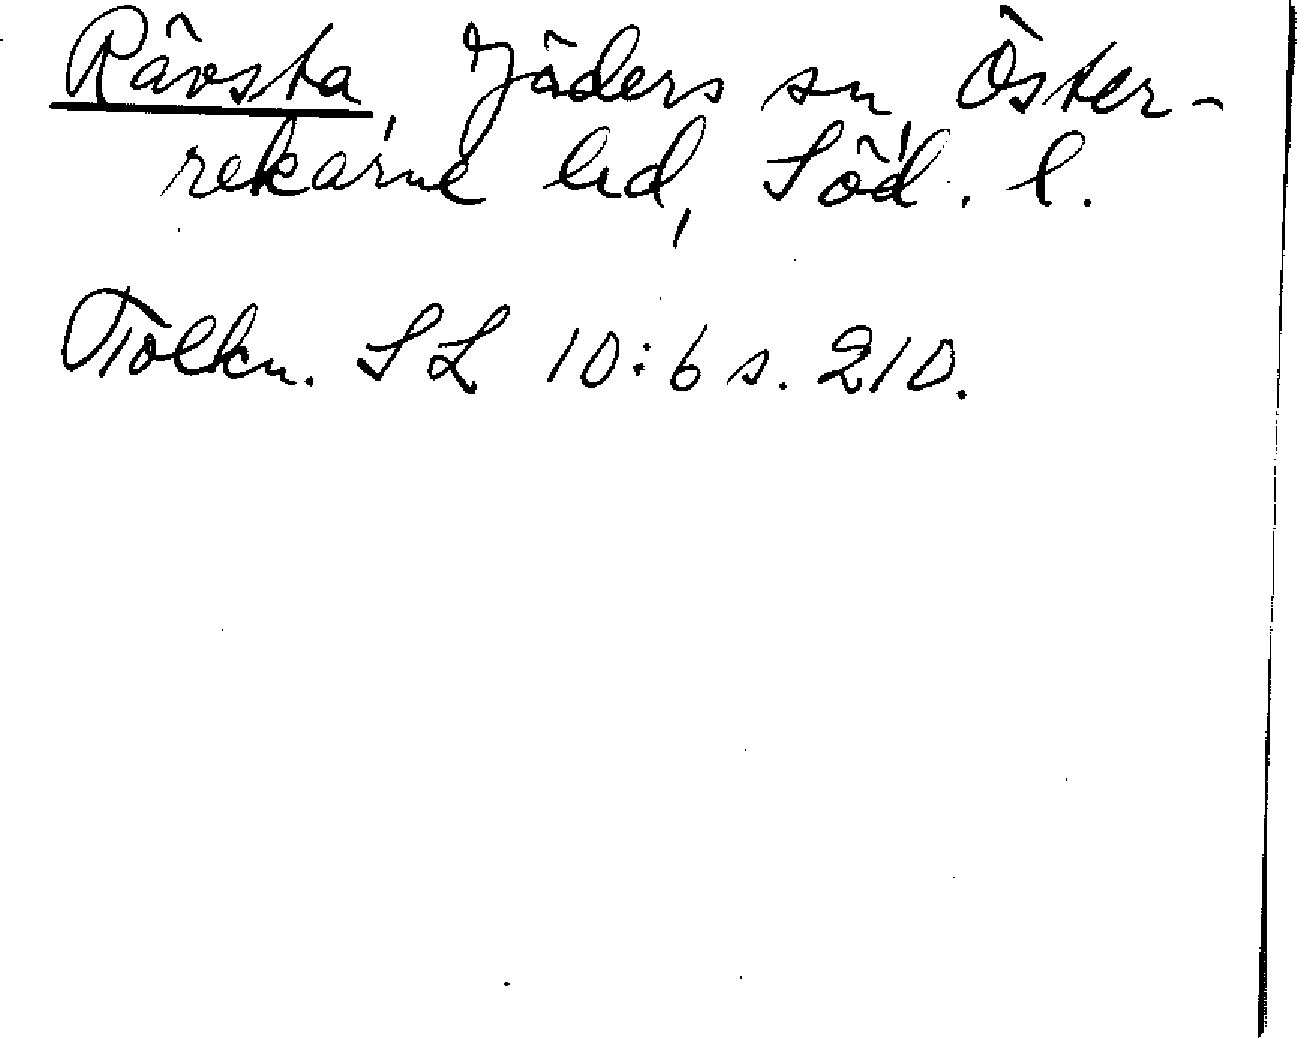 Rävsta, Jäders sn, Öster-
rekarne hd, Söd. l.
Tolkn. SL 10:6 s. 210.